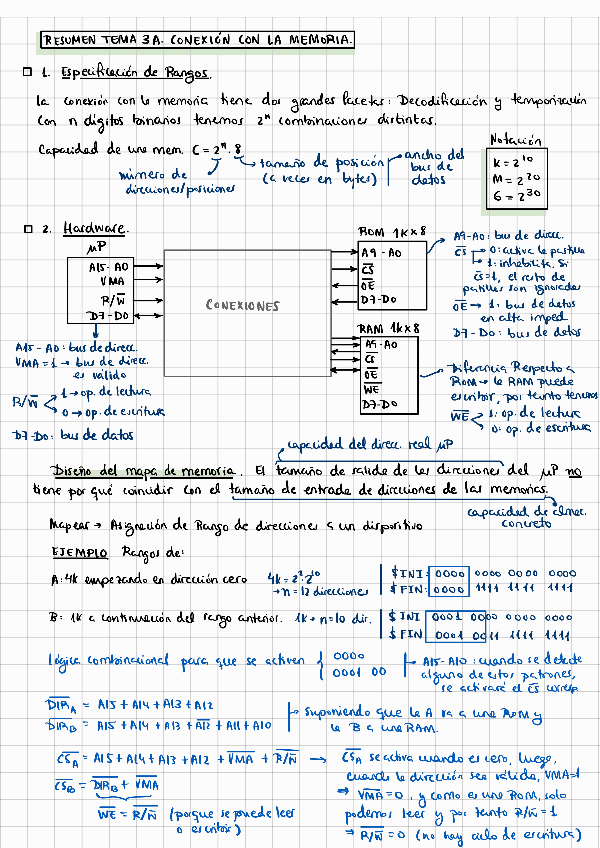 RESUMEN TEMA 3A. CONEXIÓN CON LA MEMORIA.
1. Especificación de Rangos.
La conexión con la memoria tiene dos grandes facetas: Decodificación y temporización
Con n dígitos binarios tenemos 2^n combinaciones distintas.
Capacidad de una mem. C = 2^n · 8
número de direcciones/posiciones
tamaño de posición (a veces en bytes)
ancho del bus de datos
Notación
K = 2^10
M = 2^20
G = 2^30
2. Hardware.
μP
A15-A0
VMA
R/W̅
D7-D0
CONEXIONES
ROM 1K x 8
A9-A0
C̅S̅
O̅E̅
D7-D0
RAM 1K x 8
A9-A0
C̅S̅
O̅E̅
W̅E̅
D7-D0
A15-A0: bus de direcc.
VMA = 1 → bus de direcc. es válido
R/W̅
1 → op. de lectura
0 → op. de escritura
D7-D0: bus de datos
A9-A0: bus de direcc.
C̅S̅
0: activa la pastilla
1: inhabilita. Si
C̅S̅=1, el resto de
patillas son ignoradas
O̅E̅ → 1: bus de datos
en alta imped
D7-D0: bus de datos
Diferencia Respecto a
ROM → la RAM puede
escribir, por tanto tenemos
W̅E̅
1: op. de lectura
0: op. de escritura
capacidad del direcc. real μP
Diseño del mapa de memoria. El tamaño de salida de las direcciones del μP no
tiene por qué coincidir con el tamaño de entrada de direcciones de las memorias.
capacidad de almac.
concreto
Mapear → Asignación de Rango de direcciones a un dispositivo
EJEMPLO Rangos de:
A: 4K empezando en dirección cero
4K = 2^2·2^10
→ n = 12 direcciones
$INI: 0000 0000 0000 0000
$FIN: 0000 1111 1111 1111
B: 1K a continuación del rango anterior. 1K → n=10 dir.
$INI 0001 0000 0000 0000
$FIN 0001 0011 1111 1111
lógica combinacional para que se activen
0000
0001 00
A15-A10: cuando se detecte
alguno de estos patrones,
se activará el C̅S̅ corresp.
D̅I̅R̅A = A15 + A14 + A13 + A12
D̅I̅R̅B = A15 + A14 + A13 + A̅1̅2̅ + A11 + A10
Suponiendo que la A va a una ROM y
la B a una RAM.
C̅S̅A = A15 + A14 + A13 + A12 + V̅M̅A̅ + R̅/̅W̅ → C̅S̅A se activa cuando es cero, luego,
cuando la dirección sea válida, VMA=1
C̅S̅B = D̅I̅R̅B + V̅M̅A̅
⇒ V̅M̅A̅ = 0, y como es una ROM, solo
podemos leer y por tanto R/W̅ = 1
W̅E̅ = R/W̅ (porque se puede leer
o escribir)
⇒ R̅/̅W̅ = 0 (no hay ciclo de escritura)